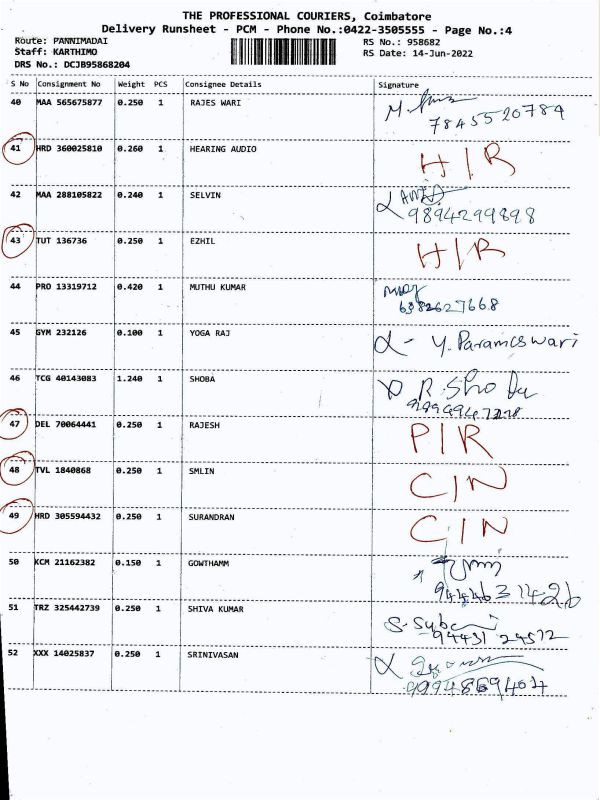 THE PROFESSIONAL COURIERS, Coimbatore
Delivery Runsheet - PCM - Phone No.:0422-3505555 - Page No.:4
Route: PANNIMADAI
Staff: KARTHIMO
DRS No.: DCJB95868204
RS No.: 958682
RS Date: 14-Jun-2022
S No Consignment No Weight PCS Consignee Details Signature
40 MAA 565675877 0.250 1 RAJES WARI
7845520784
41 HRD 360025810 0.260 1 HEARING AUDIO H/R
42 MAA 288105822 0.240 1 SELVIN
9894299898
43 TUT 136736 0.250 1 EZHIL H/R
44 PRO 13319712 0.420 1 MUTHU KUMAR
6382627668
45 GYM 232126 0.100 1 YOGA RAJ Y. Parameswari
46 TCG 40143083 1.240 1 SHOBA R. Shoba
47 DEL 70064441 0.250 1 RAJESH P/R
48 TVL 1840868 0.250 1 SMLIN C/N
49 HRD 305594432 0.250 1 SURANDRAN C/N
50 KCM 21162382 0.150 1 GOWTHAMM
9444631426
51 TRZ 325442739 0.250 1 SHIVA KUMAR
94431 24572
52 XXX 14025837 0.250 1 SRINIVASAN